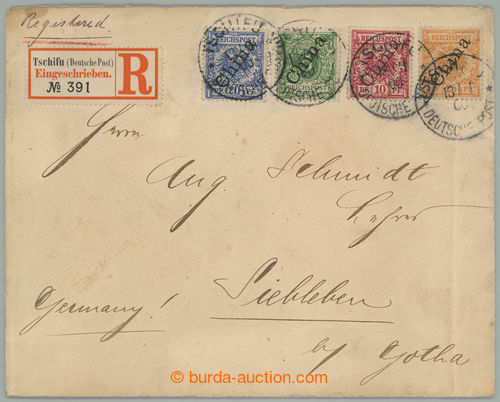 Registered.
Tschifu (Deutsche Post)
Eingeschrieben.
№ 391
R
REICHSPOST REICHSPOST REICHSPOST REICHSPOST
China China China China
10
DEUTSCHE POST
Herrn
Aug. Schmidt
Lehrer
Germany! Siebleben
by Gotha
© burda-auction.com